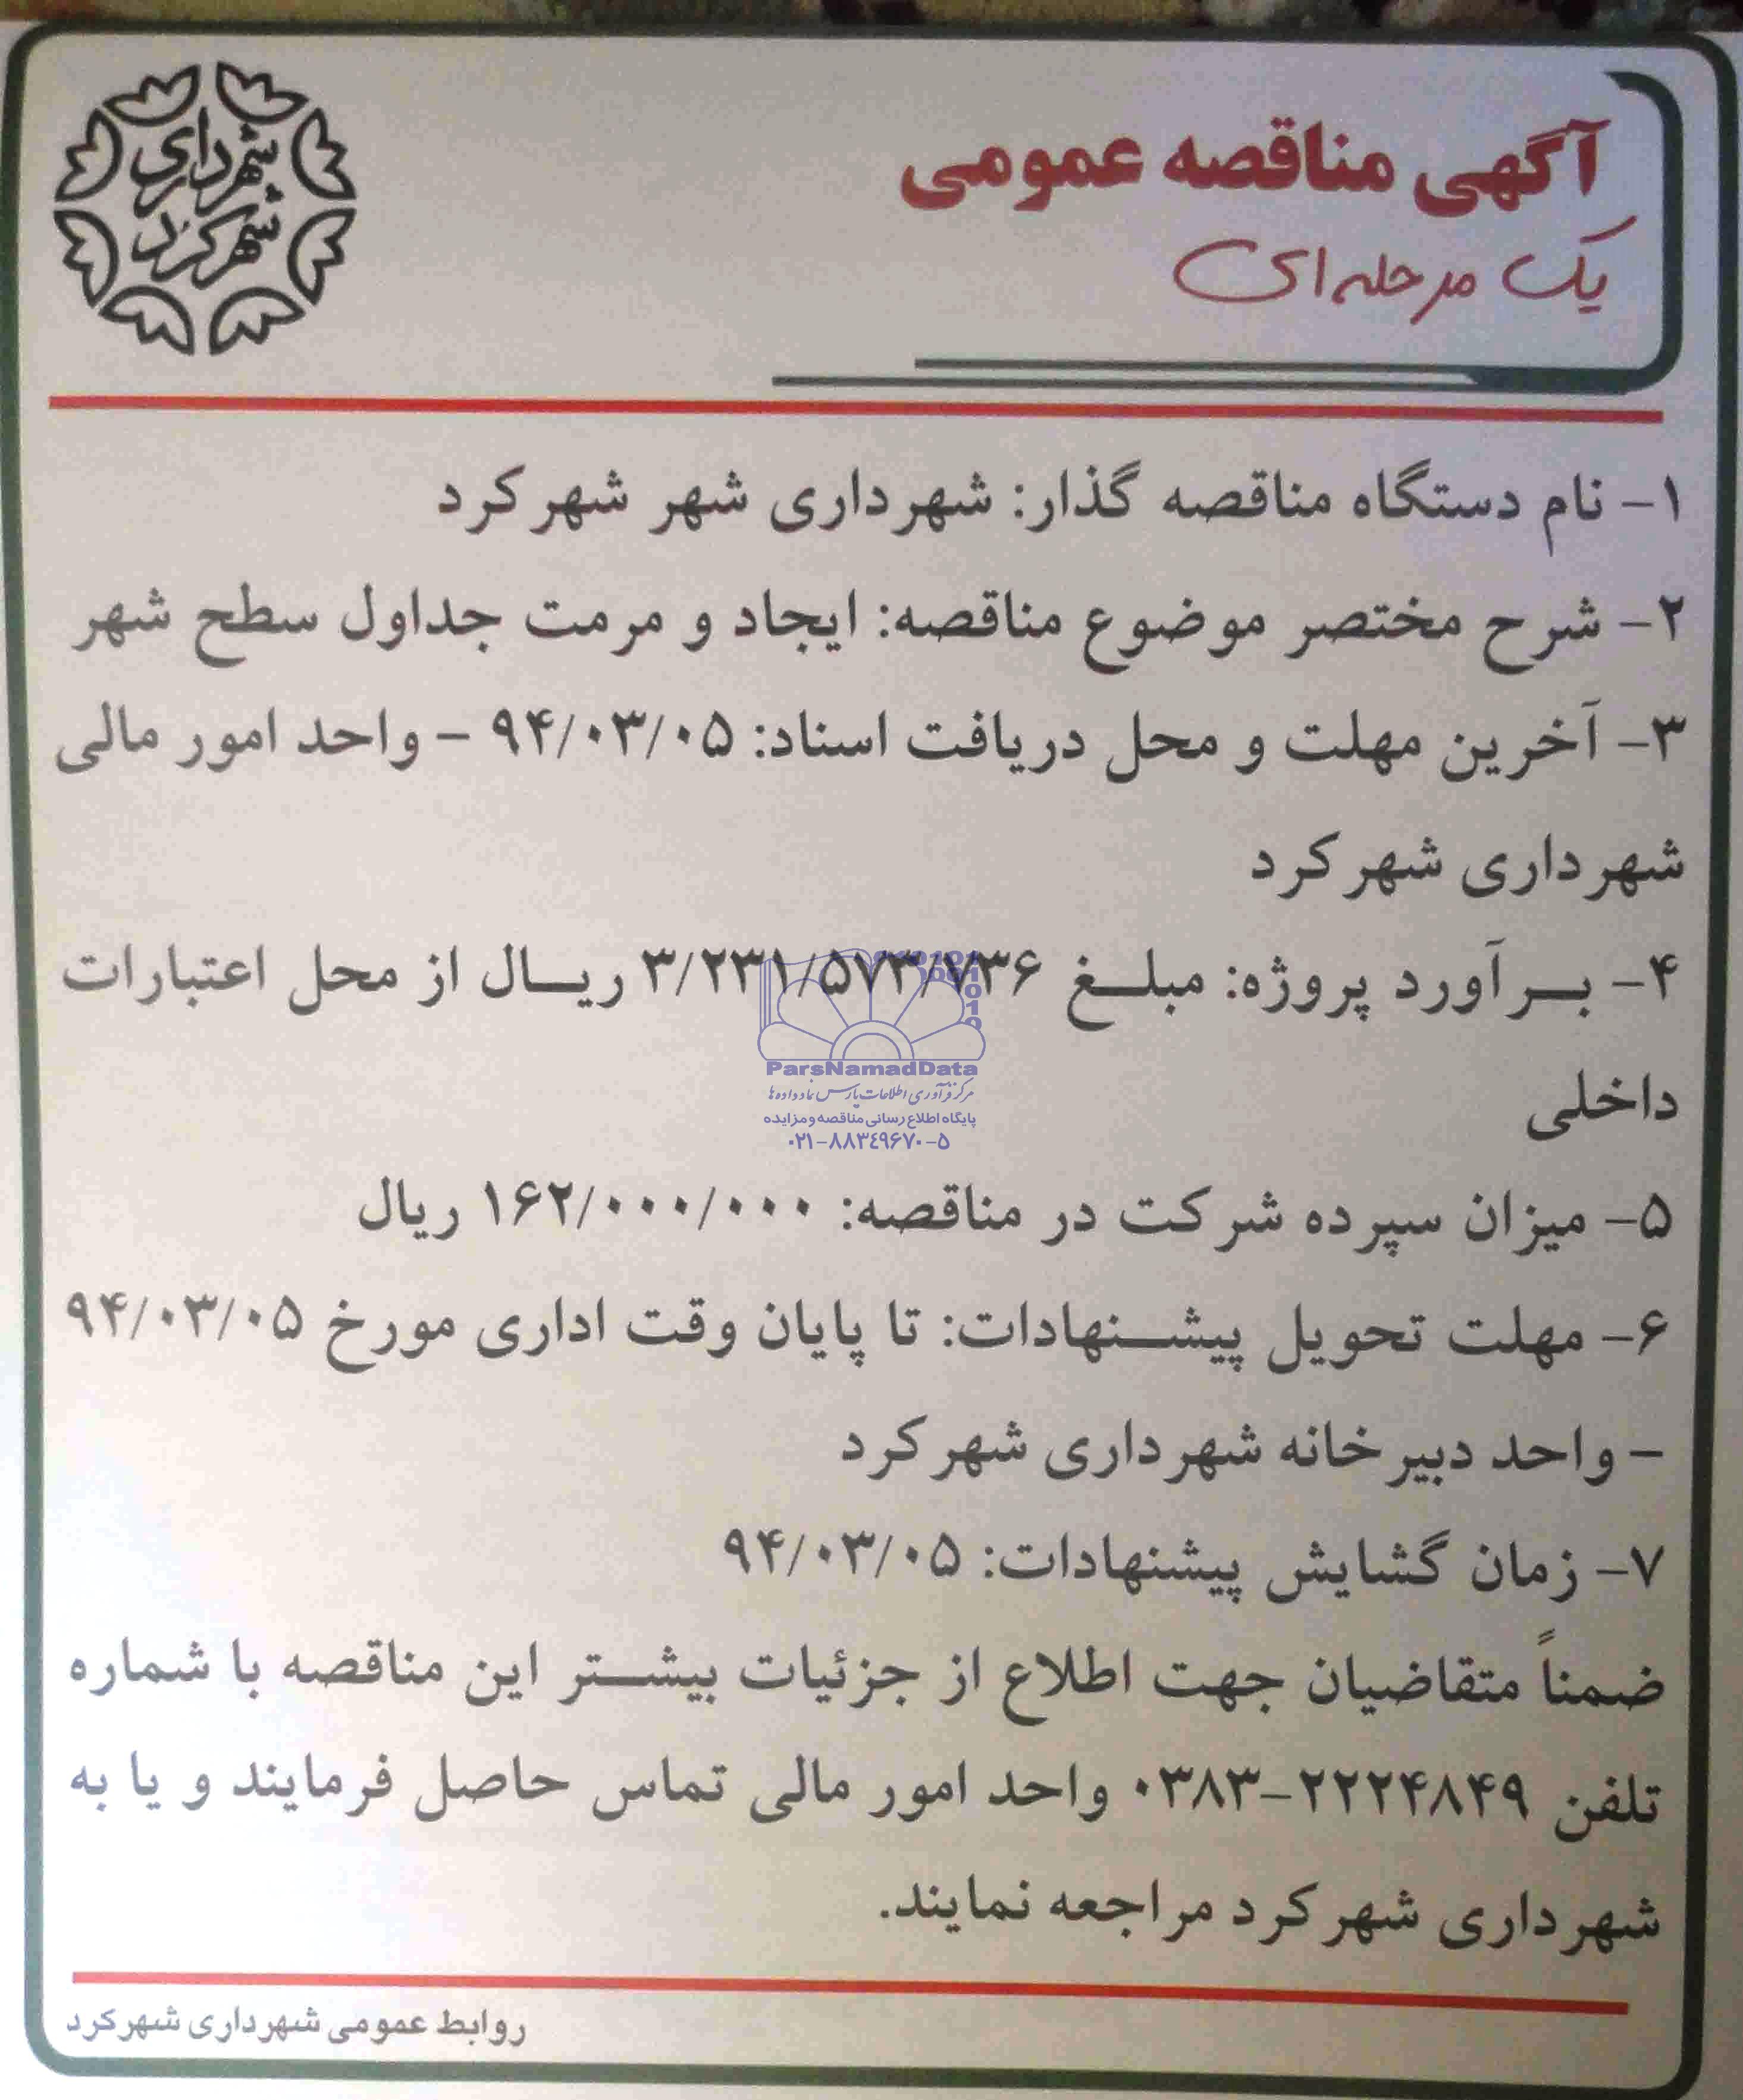 آگهی مناقصه عمومی
یک مرحله‌ای
شهرداری
شهرکرد
۱- نام دستگاه مناقصه گذار: شهرداری شهر شهرکرد
۲- شرح مختصر موضوع مناقصه: ایجاد و مرمت جداول سطح شهر
۳- آخرین مهلت و محل دریافت اسناد: ۹۴/۰۳/۰۵ - واحد امور مالی
شهرداری شهرکرد
۴- برآورد پروژه: مبلغ ۳/۲۳۱/۵۷۳/۷۳۶ ریال از محل اعتبارات
داخلی
ParsNamadData
مرکز فرآوری اطلاعات پارس نماد داده ها
پایگاه اطلاع رسانی مناقصه و مزایده
۰۲۱-۸۸۳۴۹۶۷۰-۵
۵- میزان سپرده شرکت در مناقصه: ۱۶۲/۰۰۰/۰۰۰ ریال
۶- مهلت تحویل پیشنهادات: تا پایان وقت اداری مورخ ۹۴/۰۳/۰۵
- واحد دبیرخانه شهرداری شهرکرد
۷- زمان گشایش پیشنهادات: ۹۴/۰۳/۰۵
ضمناً متقاضیان جهت اطلاع از جزئیات بیشتر این مناقصه با شماره
تلفن ۲۲۲۴۸۴۹-۰۳۸۳ واحد امور مالی تماس حاصل فرمایند و یا به
شهرداری شهرکرد مراجعه نمایند.
روابط عمومی شهرداری شهرکرد